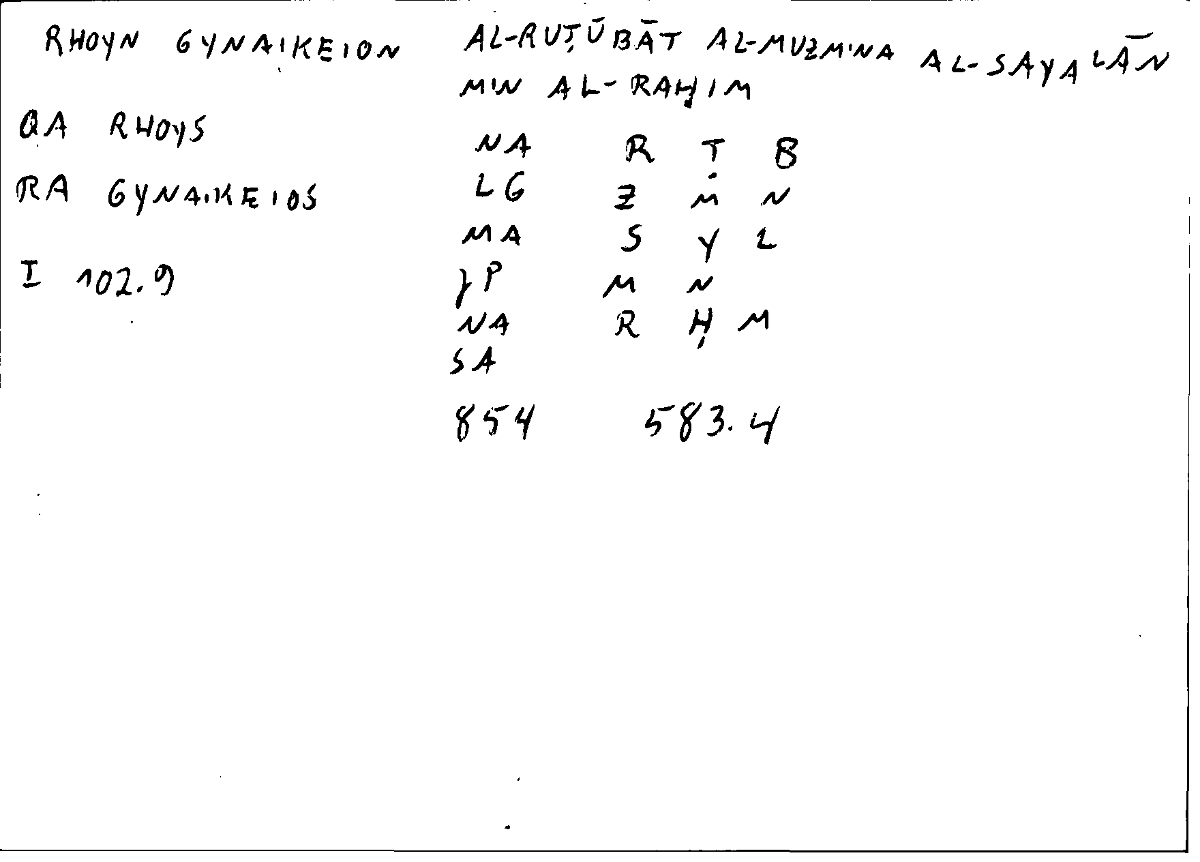 RHOYN GYNAIKEION
QA RHOYS
RA GYNAIKEIOS
I 102.9
AL-RUṬŪBĀT AL-MUZMINA AL-SAYALĀN
MIN AL-RAḤIM
NA R Ṭ B
LG Z M N
MA S Y L
JP M N
NA R Ḥ M
SA
854 583.4